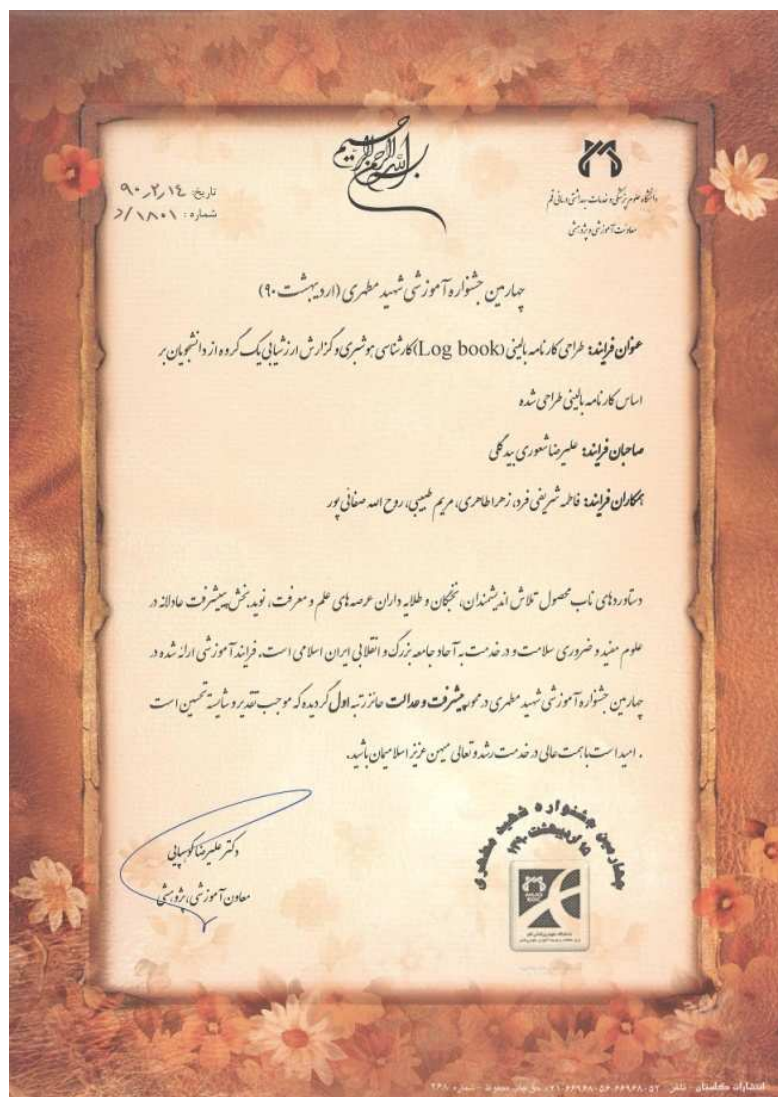 بسم الله الرحمن الرحیم
دانشگاه علوم پزشکی و خدمات بهداشتی درمانی قم
معاونت آموزشی و پژوهشی
تاریخ: ۹۰٫۲٫۱۴
شماره: ۱۸۰۱/د
چهارمین جشنواره آموزشی شهید مطهری (اردیبهشت ۹۰)
عنوان فرایند: طراحی کارنامه بالینی (Log book) کارشناسی هوشبری و گزارش ارزشیابی یک گروه از دانشجویان بر
اساس کارنامه بالینی طراحی شده
صاحبان فرایند: علیرضا شعوری بیدگلی
همکاران فرایند: فاطمه شریفی فرد، زهرا طاهری، مریم طبیبی، روح الله صفائی پور
دستاوردهای ناب محصول تلاش اندیشمندان، نخبگان و طلایه داران عرصه های علم و معرفت، نوید بخش پیشرفت عادلانه در
علوم مفید و ضروری سلامت و در خدمت به آحاد جامعه بزرگ و انقلابی ایران اسلامی است. فرایند آموزشی ارائه شده در
چهارمین جشنواره آموزشی شهید مطهری در محور پیشرفت و عدالت حائز رتبه اول گردیده که موجب تقدیر و شایسته تحسین است
. امید است با همت عالی در خدمت رشد و تعالی میهن عزیز اسلامیمان باشید.
دکتر علیرضا کوهپایی
معاون آموزشی، پژوهشی
چهارمین جشنواره شهید مطهری
۱۵ اردیبهشت ۱۳۹۰
انتشارات گلستان - تلفن: ۶۶۹۶۸۰۵۲-۶۶۹۶۸۰۵۶-۰۲۱ حق چاپ محفوظ - شماره ۲۶۸